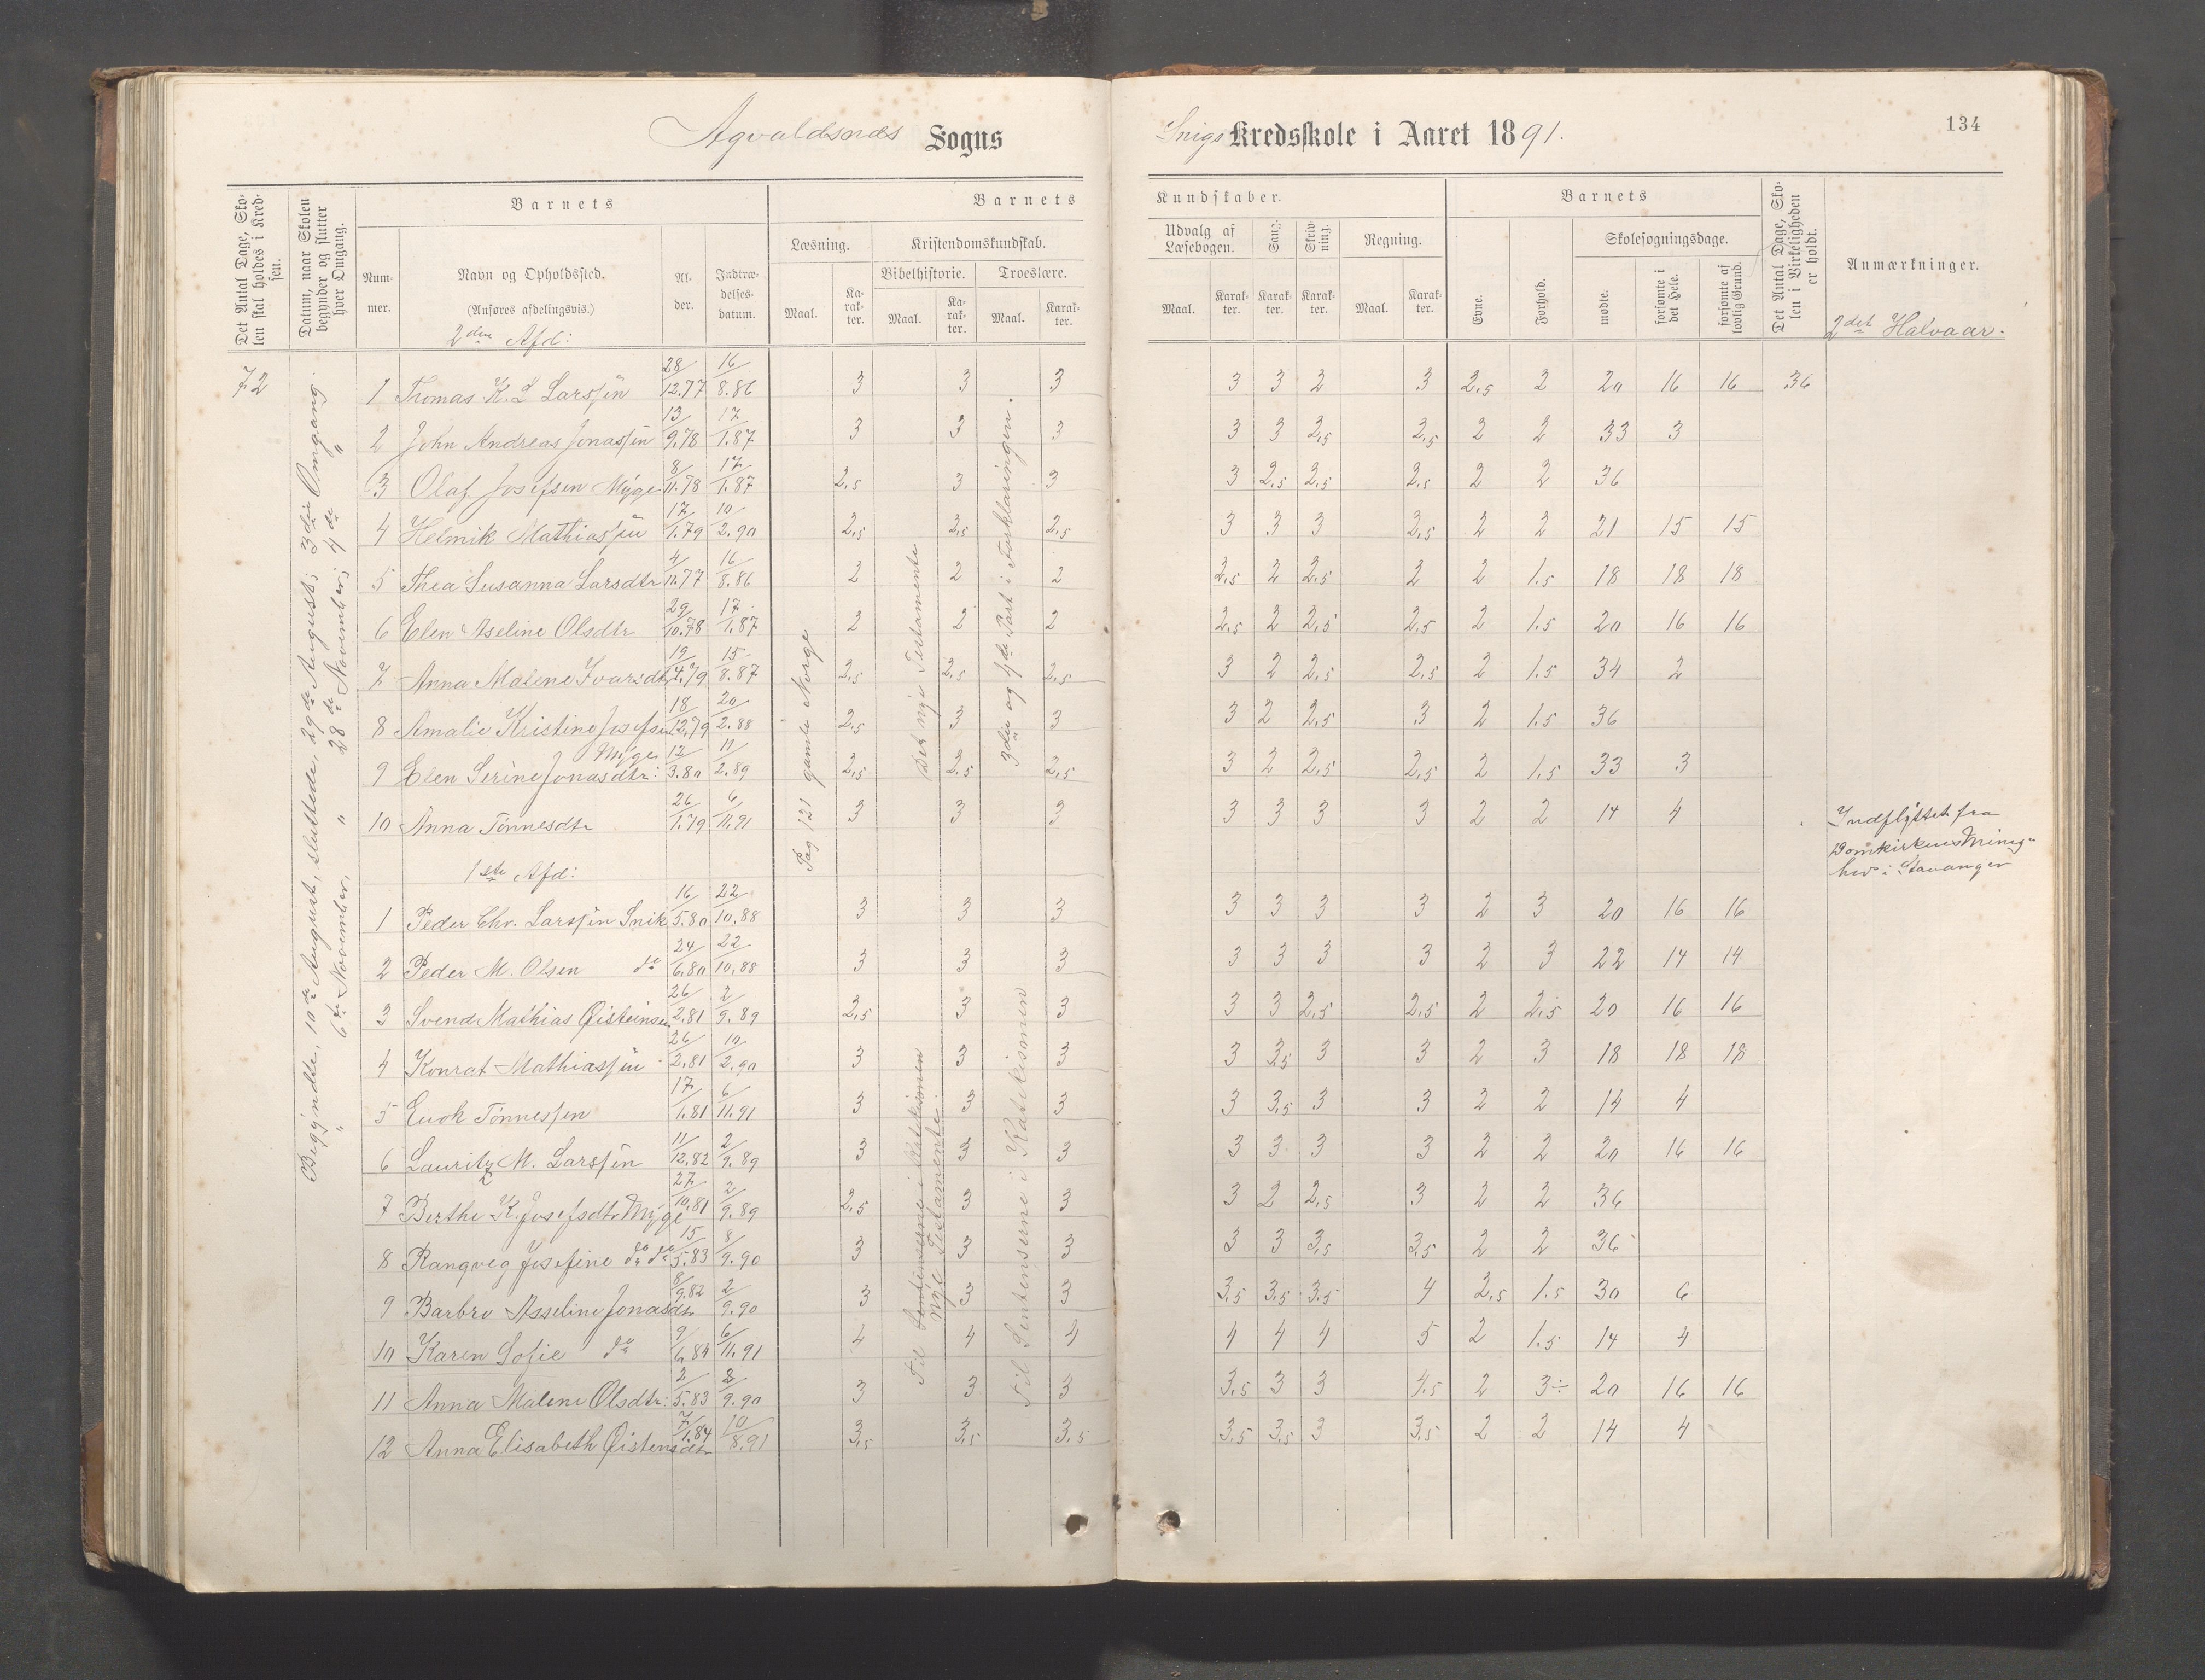 Agvaldsnæs Sogns
Snigs Kredsskole i Aaret 1891.
134
Det Antal Dage, Skolen skal holdes i Kredsen.
Datum, naar Skolen begynder og slutter hver Omgang.
Barnets
Barnets
Kundskaber.
Barnets
Det Antal Dage, Skolen i Virkeligheden er holdt.
Anmærkninger.
Nummer.
Navn og Opholdssted.
(Anføres afdelingsvis.)
Alder.
Indtrædelsesdatum.
Læsning.
Kristendomskundskab.
Bibelhistorie.
Troeslære.
Udvalg af Læsebogen.
Sang.
Skrivning.
Regning.
Evne.
Forhold.
Skolesøgningsdage.
Maal. Karakter. Maal. Karakter. Maal. Karakter.
Maal. Karakter. Karakter. Karakter. Maal. Karakter.
mødte. forsømte i det Hele. forsømte af lovlig Grund.
2den Afd:
2det Halvaar.
72
Begyndte, 10de August, sluttede, 29de August; 3die Omgang.
" 6te November, " 28de November; 4de "
Pag 121 gamle Norge
Det nye Testamente
3die og 4de Part i Forklaringen.
1 Thomas K. L Larssen 28/12.77 16/8.86 3 3 3 3 3 2 3 2,5 2 20 16 16 36
2 John Andreas Jonassen 13/9.78 17/1.87 3 3 3 3 3 2,5 2,5 2 2 33 3
3 Olaf Josefsen Myge 8/11.78 17/1.87 2,5 3 3 3 2,5 2,5 2,5 2 2 36
4 Helmik Mathiassen 17/1.79 10/2.90 2,5 2,5 2,5 3 3 3 2,5 2 2 21 15 15
5 Thea Susanna Larsdtr 4/11.77 16/8.86 2 2 2 2,5 2 2,5 2 2 1.5 18 18 18
6 Elen Aseline Olsdtr 29/10.78 17/1.87 2 2 2 2,5 2 2,5 2,5 2 1.5 20 16 16
7 Anna Malene Ivarsdtr 19/4.79 15/8.87 2,5 2,5 2,5 3 2 2,5 2,5 2 1.5 34 2
8 Amalie Kristine Josefsen Myge 18/12.79 20/2.88 2,5 3 3 3 2 2,5 3 2 1.5 36
9 Elen Serine Jonasdtr: 12/3.80 11/2.89 2,5 2,5 2,5 3 2 2,5 2,5 2 1.5 33 3
10 Anna Tönnesdtr 26/1.79 6/11.91 3 3 3 3 3 3 3 2 2 14 4
Indflyttet fra
Domkirkens Menig-
hed i Stavanger
1ste Afd:
Til Sentenserne i Katekismen
Nye Testamente.
Til Sentenserne i Katekismen
1 Peder Chr. Larssen Snik 16/5.80 22/10.88 3 3 3 3 3 3 3 2 3 20 16 16
2 Peder M. Olsen do 24/6.80 22/10.88 3 3 3 3 3 3 3 2 3 22 14 14
3 Svend Mathias Øisteinsen 26/2.81 2/9.89 2,5 3 3 3 3 2,5 2,5 2 2,5 20 16 16
4 Konrat Mathiassen 26/2.81 10/2.90 3 3 3 3 3,5 3 3 2 3 18 18 18
5 Enok Tönnessen 17/1.81 6/11.91 3 3 3 3 3,5 3 3 2 2 14 4
6 Lauritz M. Larssen 11/12.82 2/9.89 3 3 3 3 3 3 3 2 2 20 16 16
7 Berthe K. Josefsdtr Myge 27/10.81 2/9.89 2,5 3 3 3 2 2,5 3 2 2 36
8 Rangveg Josefine do do 15/5.83 8/9.90 3 3 3 3 3 3,5 3,5 2 2 36
9 Barbro Asseline Jonasdtr 8/9.82 2/9.90 3 3 3 3,5 3,5 3,5 4 2,5 1.5 30 6
10 Karen Sofie do 9/6.84 6/11.91 4 4 4 4 4 4 5 2 1.5 14 4
11 Anna Malene Olsdtr: 2/5.83 8/9.90 3 3 3 3,5 3 3 4.5 2 3÷ 20 16 16
12 Anna Elisabeth Øistensdtr 7/1.84 10/8.91 3,5 3,5 3,5 3,5 3,5 3 3,5 2 2 14 4